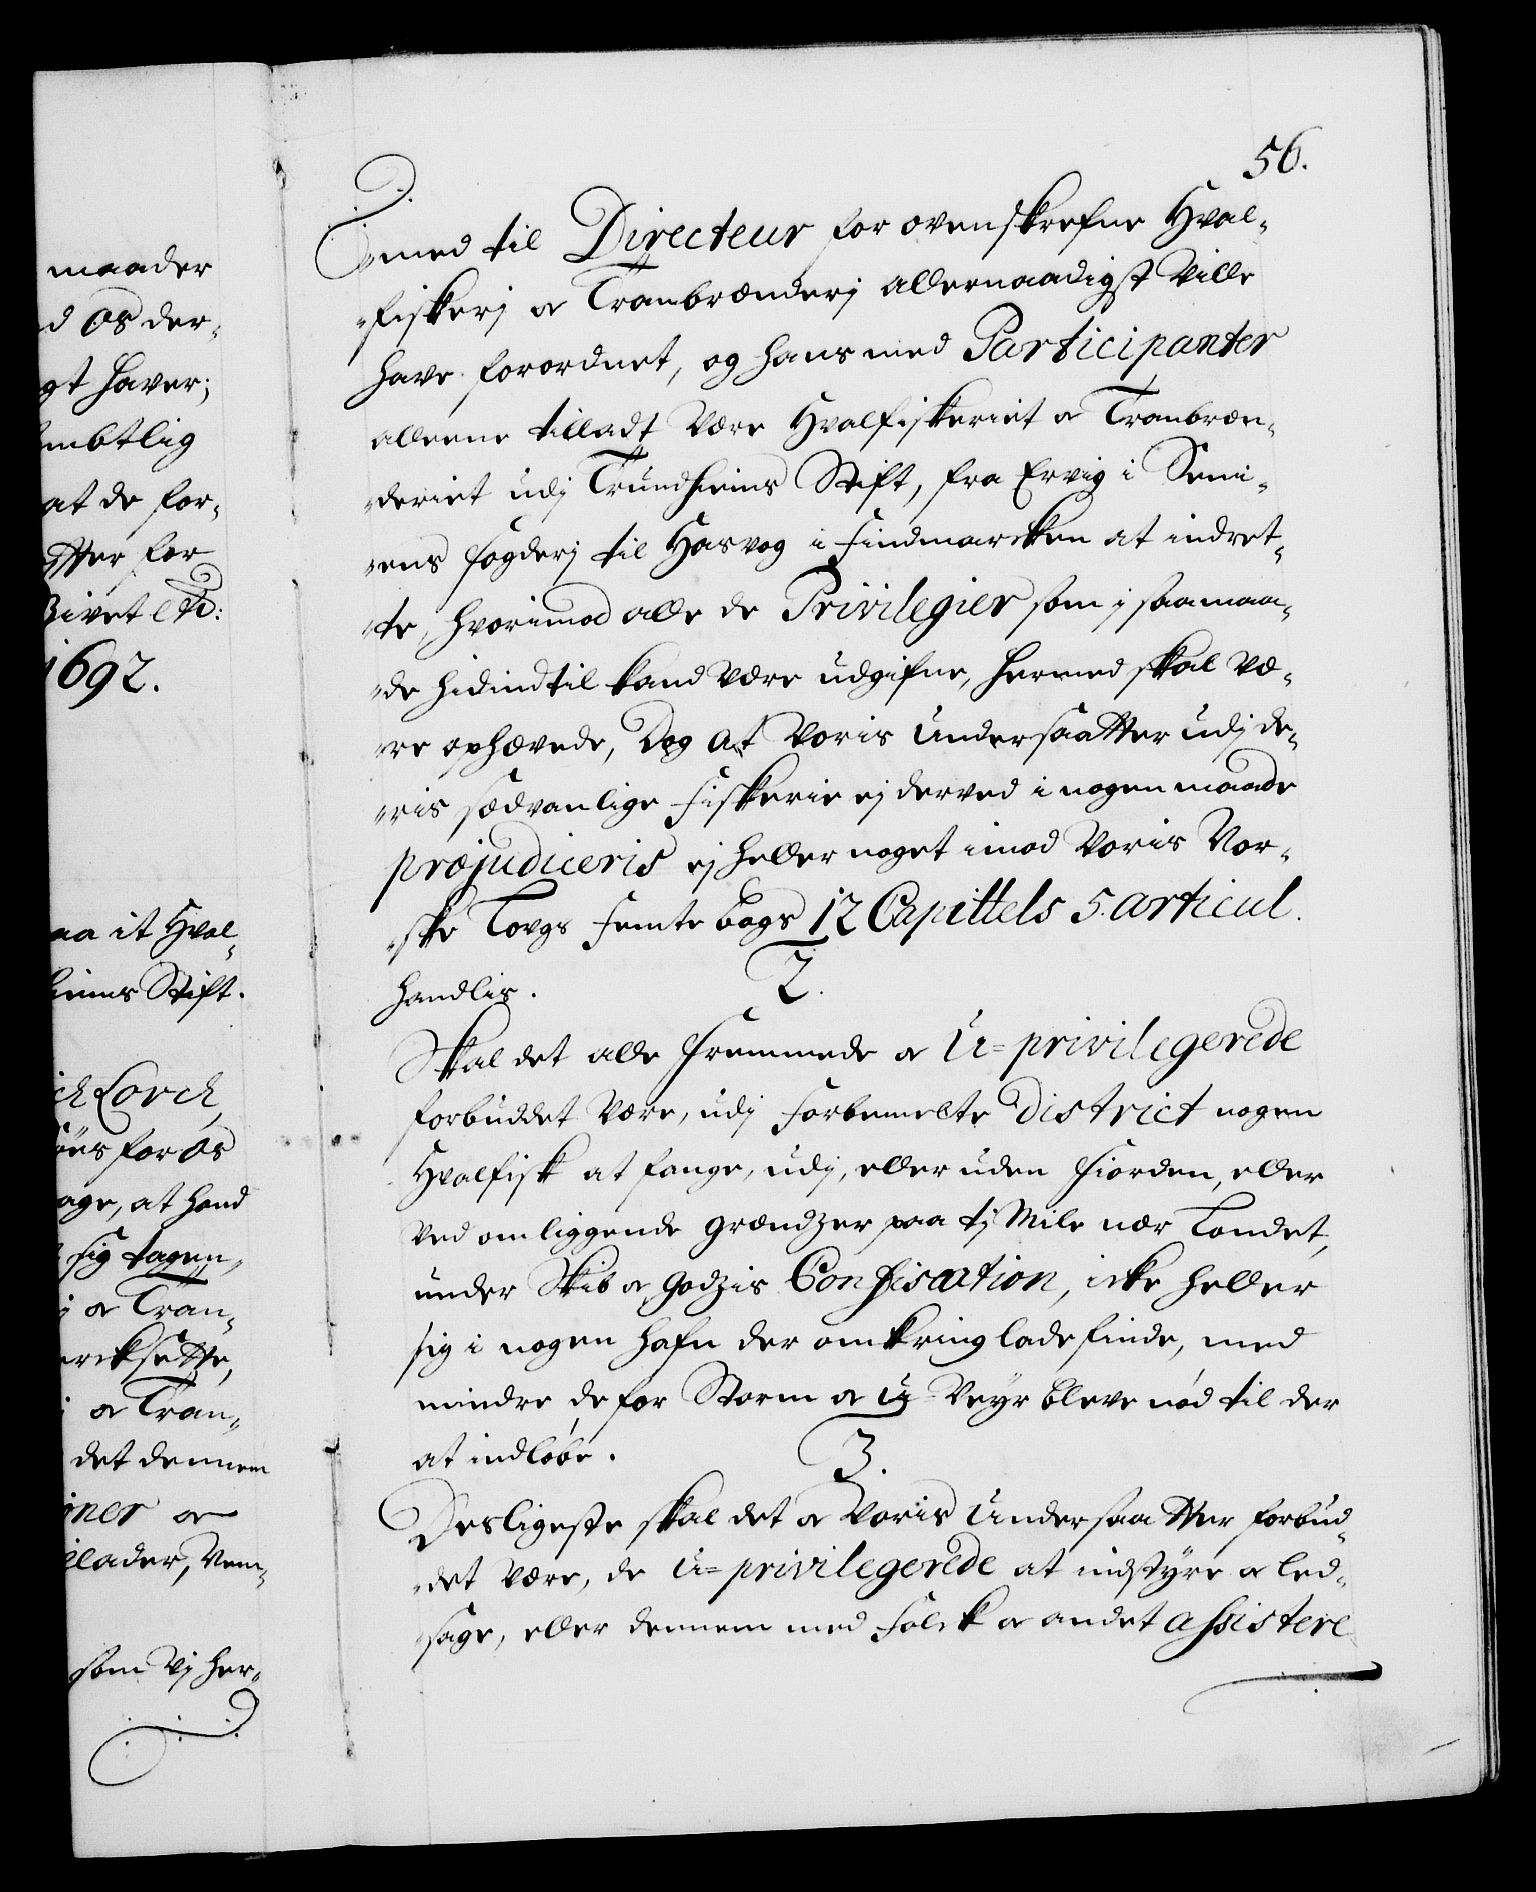 maader
d os der-
gt haver;
embtlig
at de for-
tter for
Givet etc:
1692.
aa it Hval-
hiems Stift.
ich Lorck
for os
age, at hand
sig tagen,
i & Tran-
ercksette,
i & Tran-
det dennem
iner &
ilader, Vem-
som Vj her-
56.
med til Directeur for ovenskrefne Hval-
fiskerj & Tranbrænderj allernaadigst Ville
have forordnet, og hans med Participanter
alleene tilladt Være Hvalfiskeriet & Tranbræn-
deriet udj Trundhiems Stift, fra Ervig i Seni-
ens fogderj til Hasvog i Findmarcken at indret-
te, hvorimod alle de Privilegier som j saamaa-
de hidindtil kand Være udgifne, hermed skal Væ-
re ophævede, Dog at Voris Undersaatter udj de-
ris sædvanlige fiskerie ej derved i nogen maade
præjudiceris ej heller noget imod Voris Nor-
ske Lovgs femte bogs 12 Capittels 5. articul.
handlis.
2.
Skal det alle fremmede & U=privilegerede
forbuddet Være, udj forbemelte District nogen
Hvalfisk at fange, udj, eller uden fiorden, eller
Ved omliggende grændzer paa tj Mile nær Landet,
under Skib & godzis Confiscation, icke heller
sig i nogen hafn der omkring lade finde, med
mindre de for Storm & U-Veyr bleve nød til der
at indløbe.
3.
Desligeste skal det & Voris Undersaatter forbud-
det Være, de U=privilegerede at indstyre & led-
sage, eller dennem med folck & andet assistere